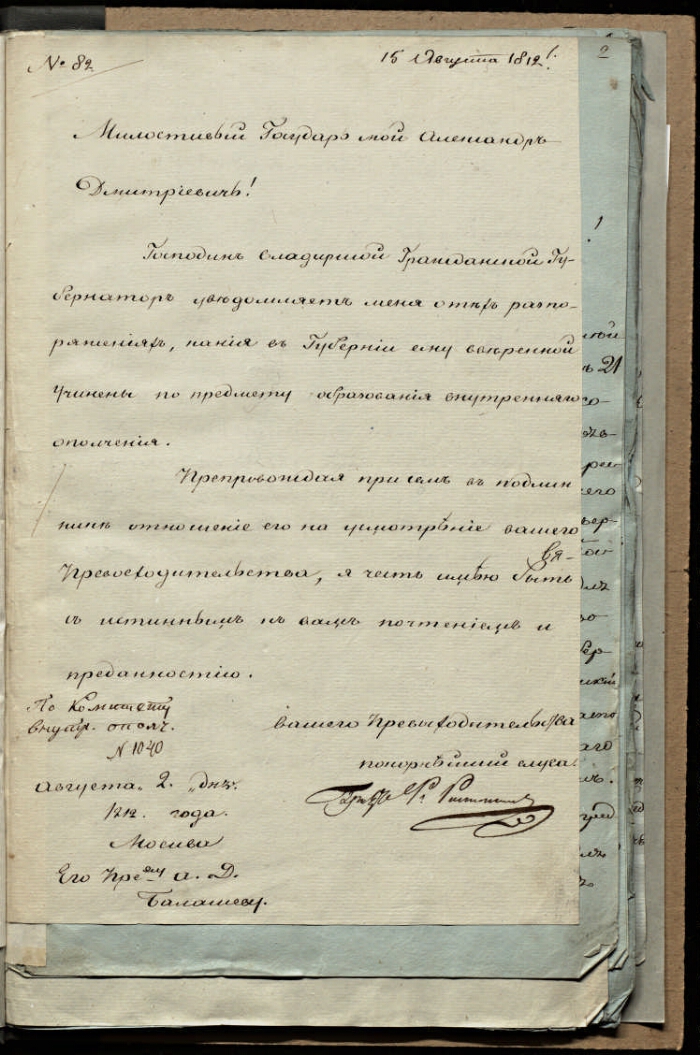 № 82
15 Августа 1812.
2
Милостивый Государь мой Александръ
Дмитріевичь!
Господинъ Владимірской Гражданской Гу-
бернаторъ увѣдомляетъ меня о тѣхъ распо-
ряженіяхъ, какія въ Губерніи ему ввѣренной
учинены по предмету образованія внутренняго
ополченія.
Препровождая при семъ въ подлин
никѣ отношеніе его на усмотрѣніе вашего
Превосходительства, я честь имѣю быть
съ истиннымъ къ вамъ почтеніемъ и
преданностію.
По Комитету
внутр. ополч.
N 1040
вашего Превосходительства
покорнѣйшій слуга
Графъ Ф. Ростопчинъ
Августа „2„ дня.
1812. года.
Москва
Его Прев-ву А. Д.
Балашеву.
1
21